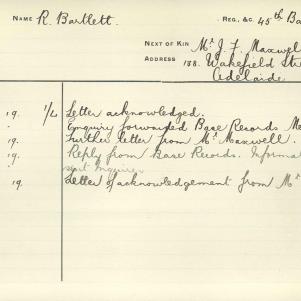 NAME R. Bartlett. REG., &C. 45th Ba
NEXT OF KIN Mr J. F. Maxwell
ADDRESS 138. Wakefield Str
Adelaide
19. 1/L Letter acknowledged.
" Enquiry forwarded Base Records Me
19. Further letter from Mr Maxwell.
19. Reply from Base Records. Informat
sent Enquirer.
19. Letter of acknowledgement from Mr